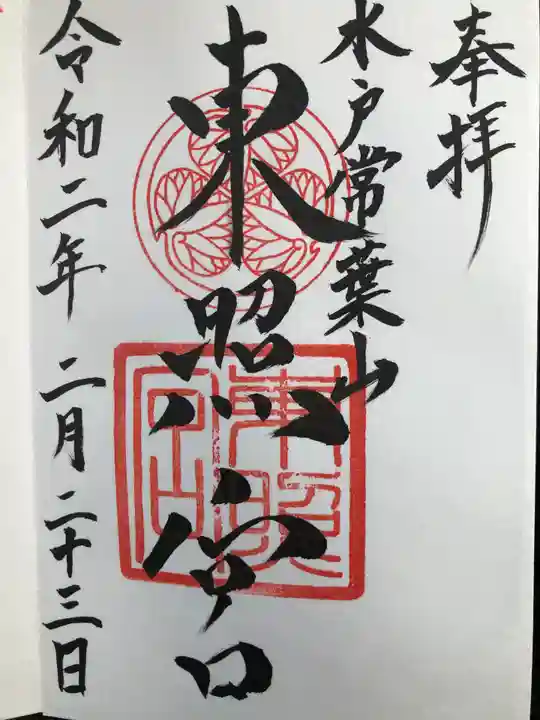 奉拝
水戸常葉山
東照宮
令和二年 二月二十三日
東照宮